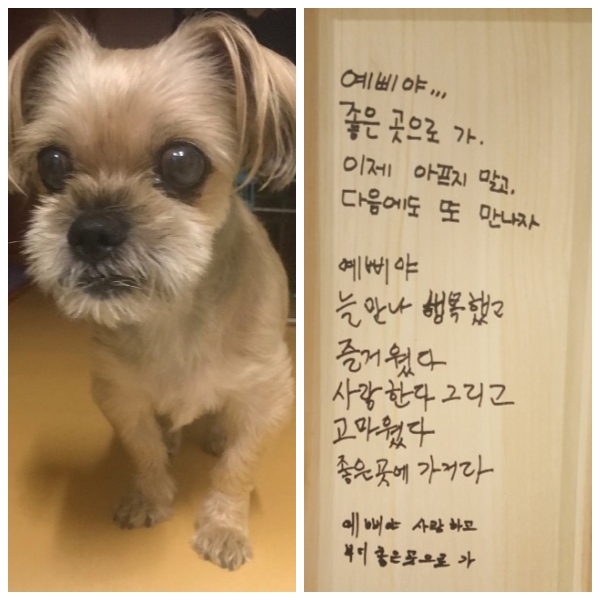 예삐야...
좋은 곳으로 가.
이제 아프지 말고,
다음에도 또 만나자
예삐야
늘 만나 행복했고
즐거웠다
사랑한다 그리고
고마웠다
좋은곳에 가거라
예삐야 사랑하고
부디 좋은곳으로 가